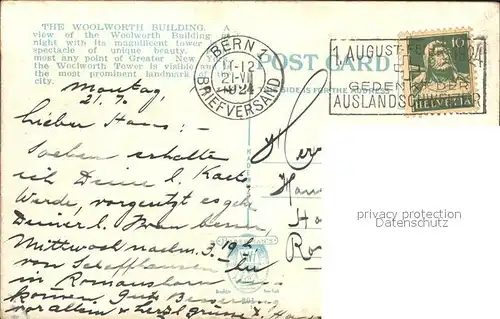 THE WOOLWORTH BUILDING. A
view of the Woolworth Building
night with its magnificent tower
spectacle of unique beauty.
most any point of Greater New
the Woolworth Tower is visible and
the most prominent landmark of
city.
POST CARD
SIDE IS FOR THE ADDRESS
BERN 1
11-12
21.VII
1924
BRIEFVERSAND
1. AUGUST
GEDENKT DER
AUSLANDSCHWEIZER
10
HELVETIA
Montag,
21.7.
Lieber Hans:-
Soeben erhalte
ich Deine l. Karte
Werde, vorgeugt es geht
Deiner l. Frau besser,
Mittwoch nachm. 3.19 h
von Schaffhausen
in Romanshorn
können. Gute Besserung
vor allem & herzl. grüsse
Her
Ro
privacy protection
Datenschutz